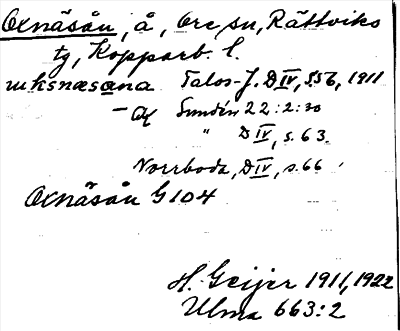 Oxnäsån, å, Ore sn, Rättviks
tg, Kopparb. l.
uksnæsana Talas-J. D IV, S.56, 1911
– a Sundén 22:2:30
" D IV, s. 63
Norrboda, D IV, s. 66
Oxnäsån G 104
H. Geijer 1911, 1922
Ulma 663:2